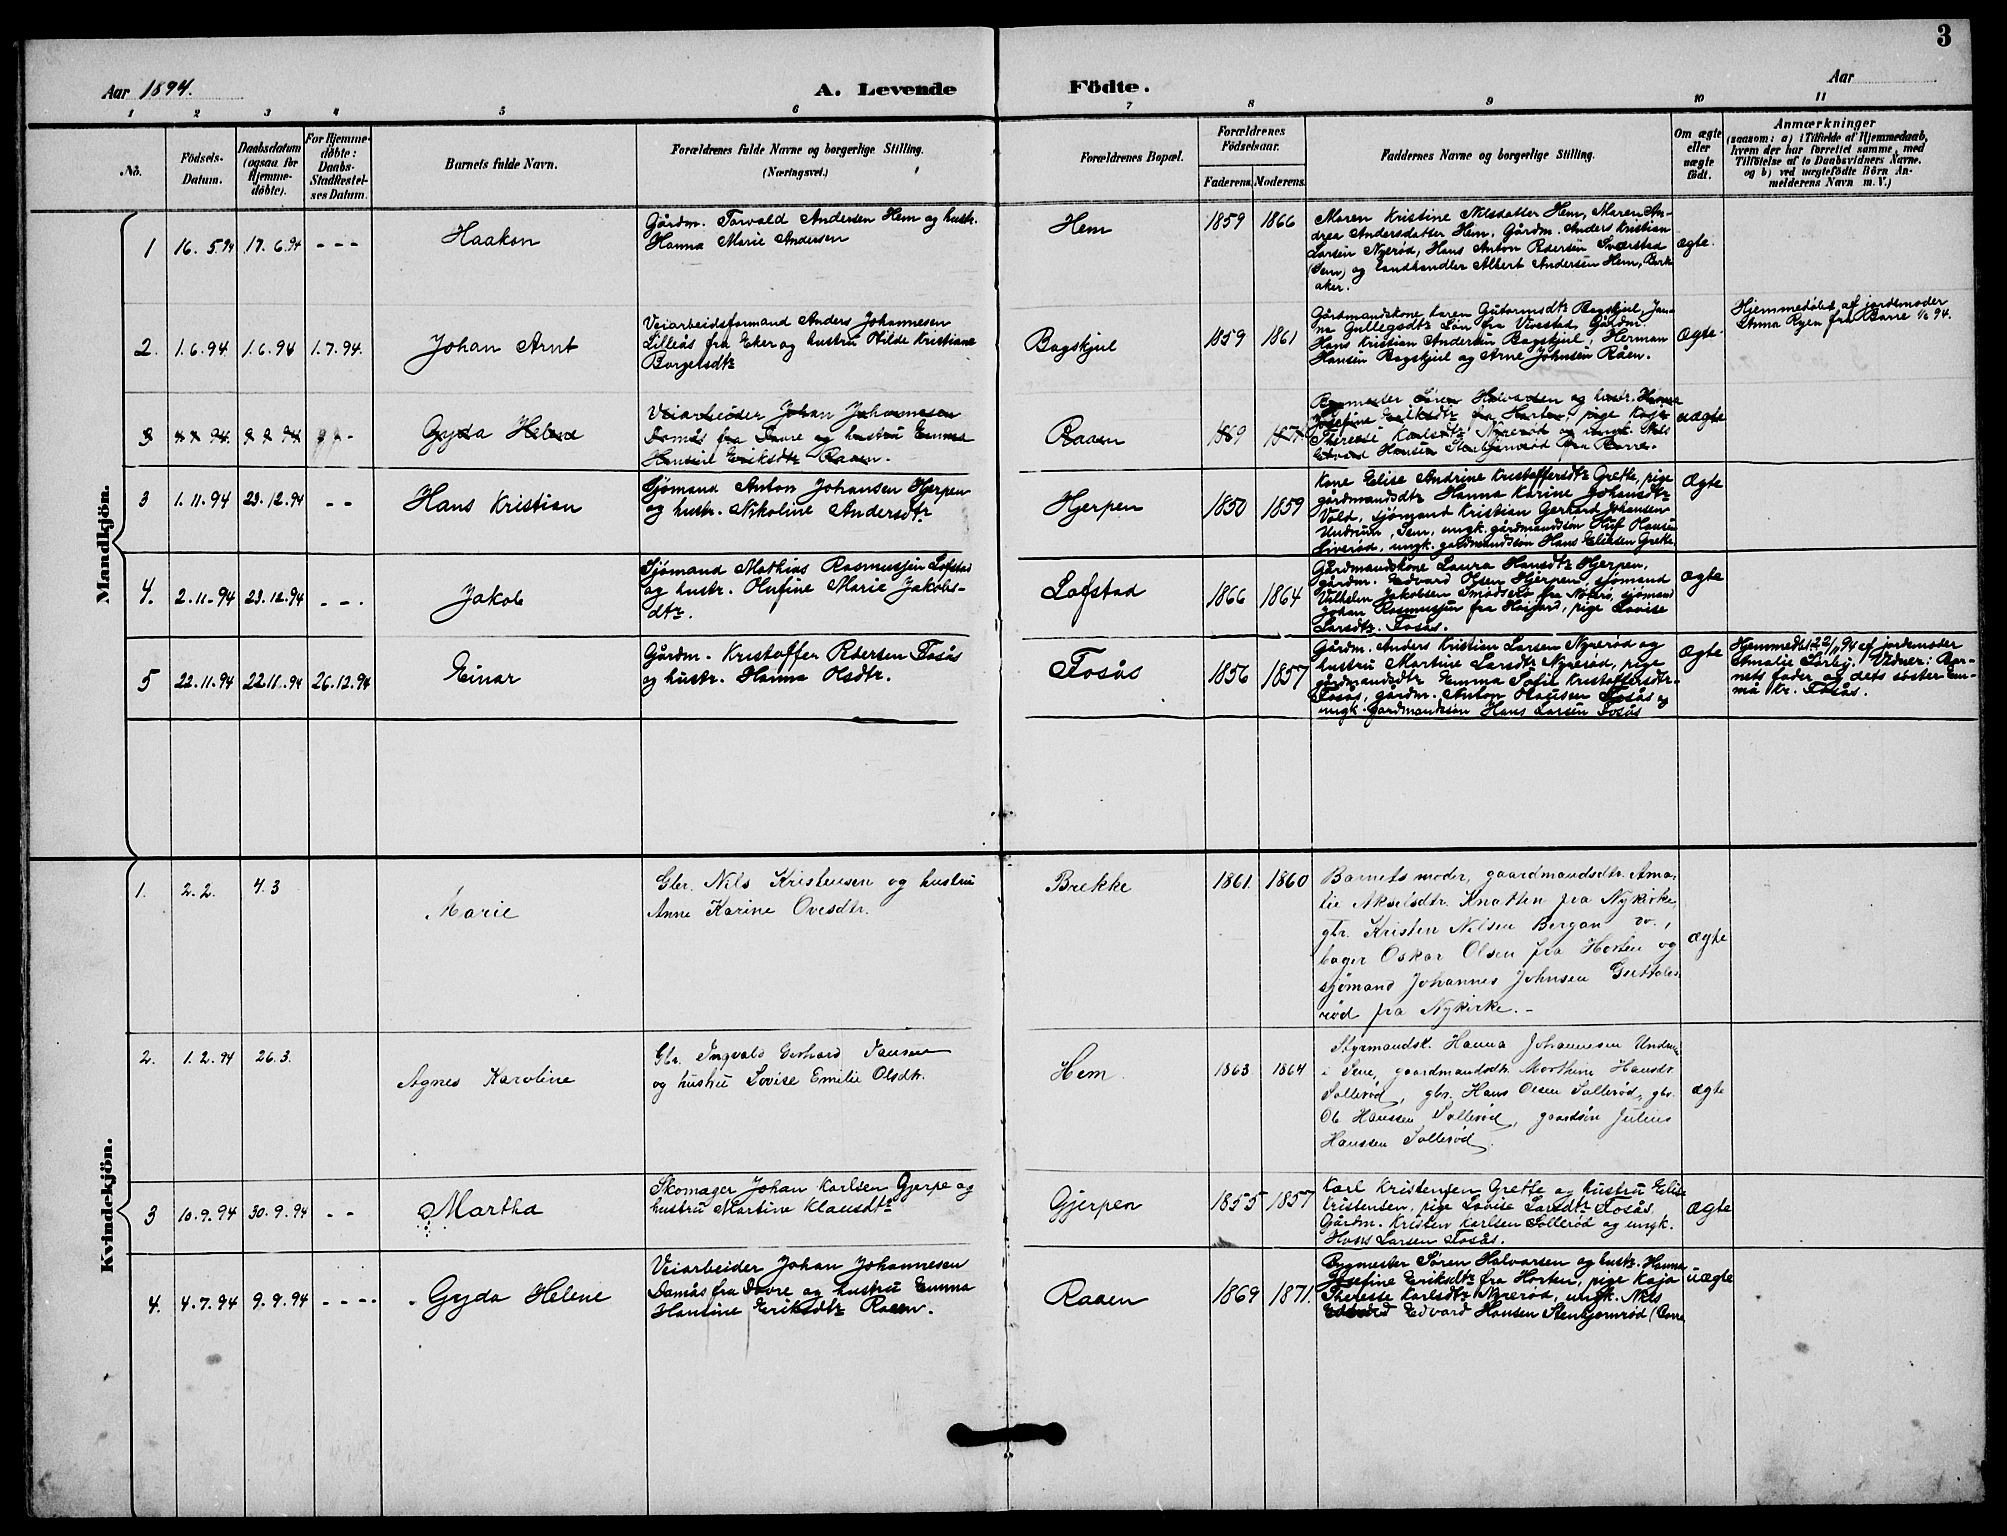 3
Aar 1894.
A. Levende Födte.
Aar
1 2 3 4 5 6 7 8 9 10 11
No.
Födsels-
Datum.
Daabsdatum
(ogsaa for
Hjemme-
döbte).
For Hjemme-
döbte:
Daabs-
Stadfæstel-
ses Datum.
Barnets fulde Navn.
Forældrenes fulde Navne og borgerlige Stilling.
(Næringsvei.)
Forældrenes Bopæl.
Forældrenes
Födselsaar.
Faderens. Moderens.
Faddernes Navne og borgerlige Stilling.
Om ægte
eller
uægte
födt.
Anmærkninger
(saasom: a) i Tilfælde af Hjemmedaab,
hvem der har forrettet samme, med
Tilföielse af to Daabsvidners Navne.
og b) ved uægtefödte Börn An-
melderens Navn m. V.)
Mandkjön.
1 16. 5. 94 17. 6. 94 - - -
Haakon
Gårdm. Torvald Andersen Hem og hustr.
Hanna Marie Andersen
Hem
1859 1866
Maren Kristine Nilsdatter Hem, Maren An-
drea Andersdatter Hem, Gårdm. Anders Kristian
Larsen Nyerød, Hans Anton Pedersen
(Sem) og landhandler Albert Andersen Hem, Bark-
aker.
ægte.
2. 1. 6. 94 1. 6. 94 1. 7. 94.
Johan Arnt
Veiarbeidsformand Anders Johannesen
Lilleås fra Eker og hustru Hilde Kristiane
Borgersdtr
Bogskjul
1859 1861
Gårdmandskone Karen Gutormsdtr Bogskjul, Jan-
na Gullegsdtr Løn fra Vivestad, Gårdm.
Hans Kristian Andersen Bogskjul, Herman
Hansen Bogskjul og Arne Johnsen Råen.
Ægte.
Hjemmedøbt af jordemoder
Anna Ryen fra Borre 1/6 94.
3
Gyda Helene
Veiarbeider Johan Johannesen
Domås fra Dovre og hustru Emma
Hansine Eriksdtr Raaen.
Raaen
1869 1871
Bygmester Søren Halvorsen og hustr. Hanna
Josefine Eriksdtr fra Horten, pige Kaja
Therese Karlsdtr Nyerød og ungk. Nils
Edvard Hansen fra Borre.
uægte
3 1. 11. 94 23. 12. 94 - -
Hans Kristian
Sjømand Anton Johansen Hjerpen
og hustr. Nikoline Andersdtr.
Hjerpen
1850 1859
Kone Elise Andrine Kristoffersdtr Grette, pige
gårdmandsdtr Hanna Karine Johansdtr
Vold, sjømand Kristian Gerhard Johansen
Undrum, Sem, ungk. gårdmandssøn Huf Hansen
Liverød, ungk. gardmandssøn Hans Eliasen Grette.
Ægte
4. 2. 11. 94 23. 12. 94 - - -
Jakob
Sjømand Mathias Rasmussen Lofstad
og hustr. Olufine Marie Jakobs-
dtr.
Lofstad
1866 1864
Gårdmandskone Laura Hansdtr Hjerpen,
gårdm. Edvard Olsen Hjerpen, sjømand
Vilhelm Jakobsen fra Nøterø, sjømand
Johan Rasmussen fra Høijord, pige Lovise
Larsdtr. Fosås.
Ægte
5 22. 11. 94 22. 11. 94 26. 12. 94
Einar
Gårdm. Kristoffer Pedersen Fosås
og hustr. Hanna Olsdtr.
Fosås
1856 1857
Gårdm. Anders Kristian Larsen Nyerød og
hustru Martine Larsdtr Nyerød, pige
gårdmandsdtr Emma Sofie Kristoffersdtr-
Fosås, gårdm. Anton Olausen Fosås og
ungk. gardmandssøn Hans Larsen Fosås
Ægte
Hjemmedøbt 22/11 94 af jordemoder
Amalie Sørby. Vidner: Bar-
nets fader og dets søster Em-
ma Kr. Fosås.
Kvindekjön.
1. 2. 2. 4. 3
Marie
Gbr. Nils Kristensen og hustru
Anne Karine Ovesdtr.
Brekke
1861. 1860
Barnets moder, gaardmandsdtr. Ama-
lie Akselsdtr. Knatten fra Nykirke
gbr. Kristen Nilsen Bergan
bager Oskar Olsen fra Horten og
sjømand Johannes Johnsen
rød fra Nykirke. -
ægte
2. 1. 2. 94 26. 3.
Agnes Karoline
Gbr. Ingvald Gerhard Jansen
og hustru Lovise Emilie Olsdtr.
Hem
1863. 1864
Styrmandsk. Hanna Johannesen Undrum
i Sem, gaardmandsdtr. Marthine Hansdtr
Sollerød, gbr. Hans Olsen Sollerød, gbr.
Ole Hanssen Sollerød, gaardsøn Julius
Hanssen Sollerød.
ægte
3 10. 9. 94 30. 9. 94 - -
Martha
Skomager Johan Karlsen Gjerpe og
hustru Martine Klausdtr
Gjerpen
1855 1857
Karl Kristensen Grette og hustru Elise
Kristensen, pige Lovise Larsdtr Fosås,
Gårdm. Kristen Karlsen Sollerød og ungk.
Hans Larsen Fosås.
Ægte
4. 4. 7. 94 9. 9. 94 - - - -
Gyda Helene
Veiarbeider Johan Johannesen
Domås fra Dovre og hustru Emma
Hansine Eriksdtr Raaen.
Raaen
1869 1871.
Bygmester Søren Halvorsen og hustr. Hanna
Josefine Eriksdtr fra Horten, pige Kaja
Therese Karlsdtr Nyerød, ungk. Nils
Edvard Hansen Stenbjørnrød (Borre
uægte